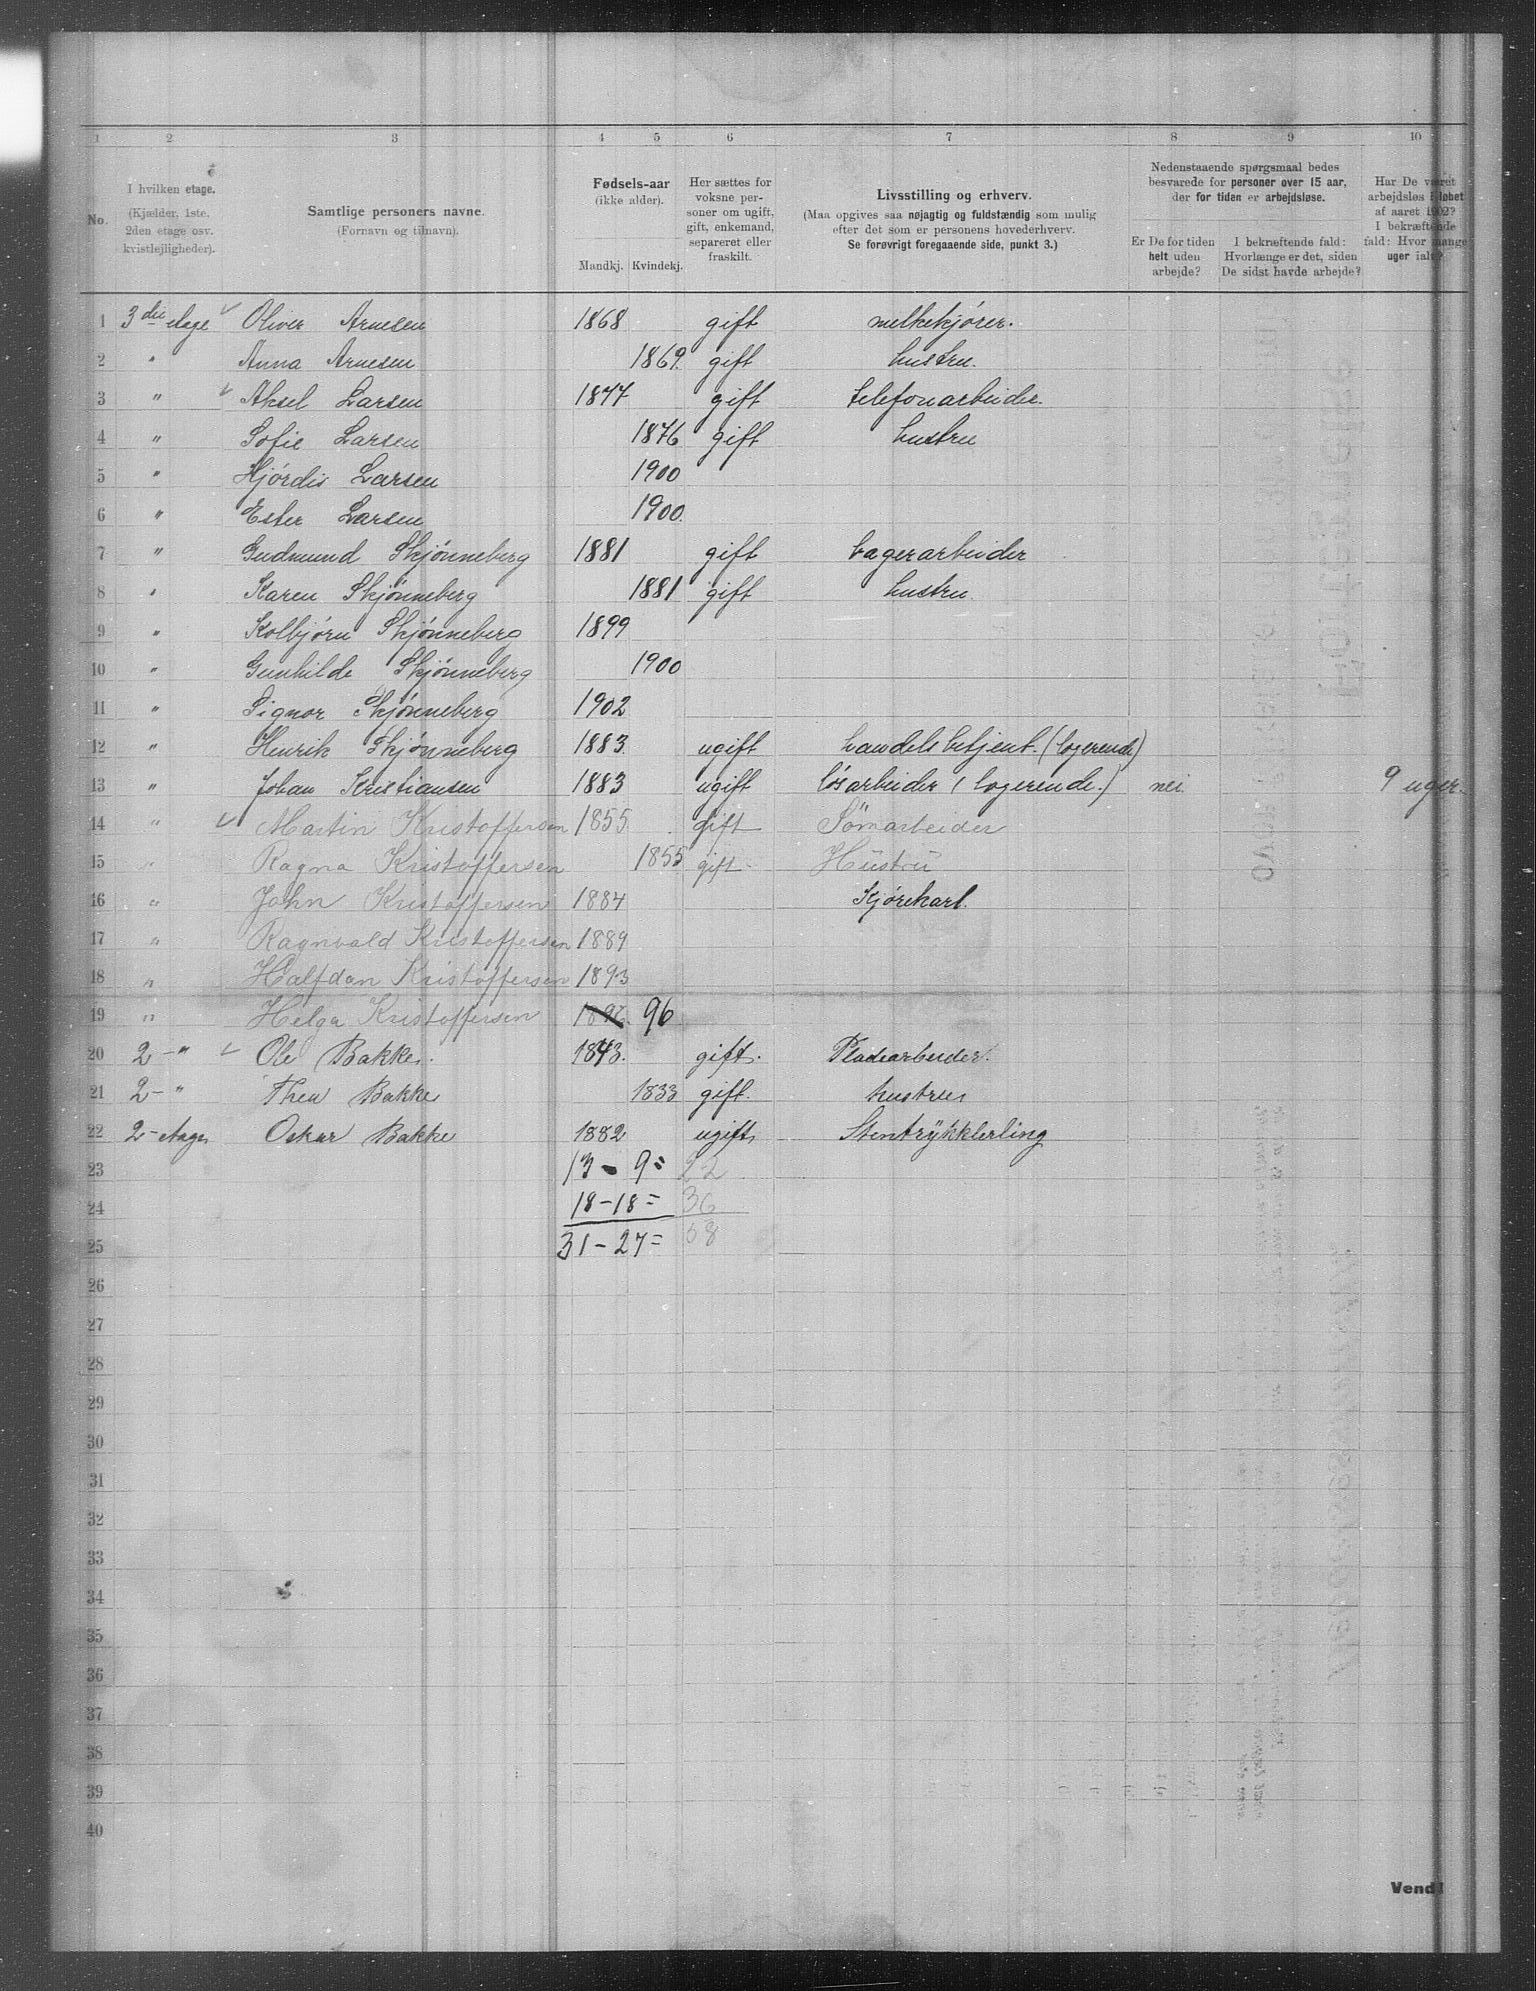 1 2 3 4 5 6 7 8 9 10
No.
I hvilken etage.
(Kjælder, 1ste.
2den etage osv.
kvistlejligheder).
Samtlige personers navne.
(Fornavn og tilnavn).
Fødsels-aar
(ikke alder).
Mandkj. Kvindekj.
Her sættes for
voksne per-
soner om ugift,
gift, enkemand,
separeret eller
fraskilt.
Livsstilling og erhverv.
(Maa opgives saa nøjagtig og fuldstændig som mulig
efter det som er personens hovederhverv.
Se forøvrigt foregaaende side, punkt 3.)
Nedenstaaende spørgsmaal bedes
besvarede for personer over 15 aar,
der for tiden er arbejdsløse.
Er De for tiden
helt uden
arbejde?
I bekræftende fald:
Hvorlænge er det, siden
De sidst havde arbejde?
Har De været
arbejdsløs i løbet
af aaret 1902?
I bekræftende
fald: Hvor mange
uger ialt?
1 3die etage Oliver Arnesen 1868 gift melkekjører.
2 " Anna Arnesen 1869 gift hustru.
3 " Aksel Larsen 1877 gift telefonarbeider.
4 " Sofie Larsen 1876 gift hustru
5 " Hjördis Larsen 1900
6 " Ester Larsen 1900.
7 " Gudmund Skjönneberg 1881 gift bagerarbeider
8 " Karen Skjönneberg 1881 gift hustru.
9 " Kolbjörn Skjönneberg 1899
10 " Gunhilde Skjönneberg 1900
11 " Signor Skjönneberg 1902
12 " Henrik Skjönneberg 1883 ugift handelsbetjent. (logerende)
13 " Johan Kristiansen 1883 ugift lösarbeider (logerende.) nei 9 uger.
14 " Martin Kristoffersen 1855 gift Sömarbeider
15 " Ragna Kristoffersen 1855 gift Hustru
16 " John Kristoffersen 1884 Kjörekarl.
17 " Ragnvald Kristoffersen 1889
18 " Halfdan Kristoffersen 1893
19 " Helga Kristoffersen 1896 96
20 2 - " Ole Bakke. 1843. gift. Pladearbeider.
21 2 - " Thea Bakke 1833 gift. hustru
22 2 - etage Oskar Bakke 1882 ugift Stentrykklerling
23 13 - 9 = 22
24 18 - 18 = 36
25 31 - 27 = 58
26
27
28
29
30
31
32
33
34
35
36
37
38
39
40
Vend!